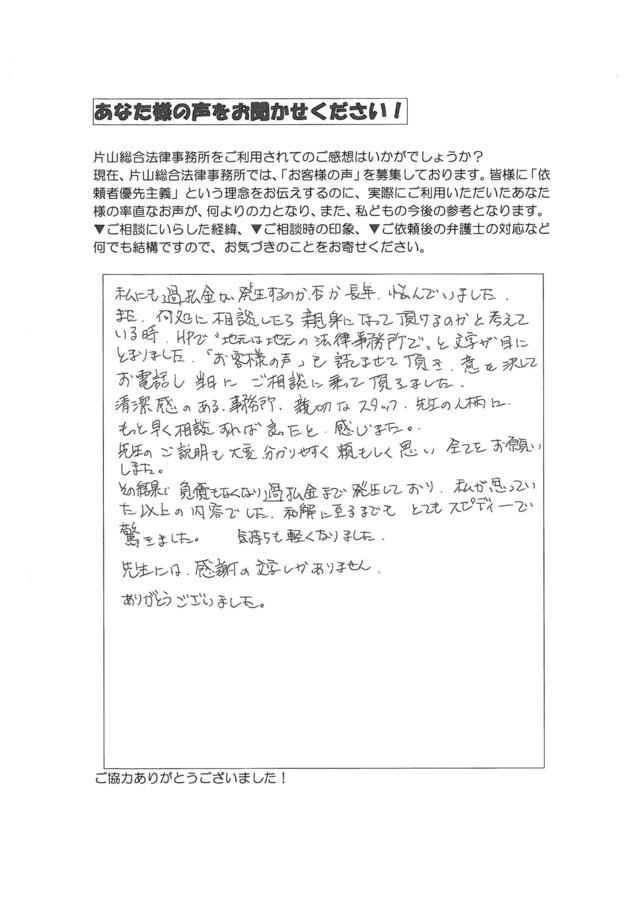 あなた様の声をお聞かせください！
片山総合法律事務所をご利用されてのご感想はいかがでしょうか？
現在、片山総合法律事務所では、「お客様の声」を募集しております。皆様に「依
頼者優先主義」という理念をお伝えするのに、実際にご利用いただいたあなた
様の率直なお声が、何よりの力となり、また、私どもの今後の参考となります。
▼ご相談にいらした経緯、▼ご相談時の印象、▼ご依頼後の弁護士の対応など
何でも結構ですので、お気づきのことをお寄せください。
私にも過払金が発生するのか否か長年、悩んでいました、
また、何処に相談したら親身になって頂けるのかと考えて
いる時、HPで“地元は地元の法律事務所で”と文字が目に
とまりました、「お客様の声」も読ませて頂き、意を決して
お電話し当日にご相談に乗って頂きました。
清潔感のある、事務所、親切なスタッフ、先生の人柄に、
もっと早く相談すれば良かったと、感じました。
先生のご説明も大変分かりやすく頼もしく思い全てをお願い
しました。
その結果で負債もなくなり過払金まで発生しており、私が思ってい
た以上の内容でした、和解に至るまでもとてもスピディーで
驚きました。 気持ちも軽くなりました、
先生には、感謝の文字しかありません、
ありがとうございました。
ご協力ありがとうございました！